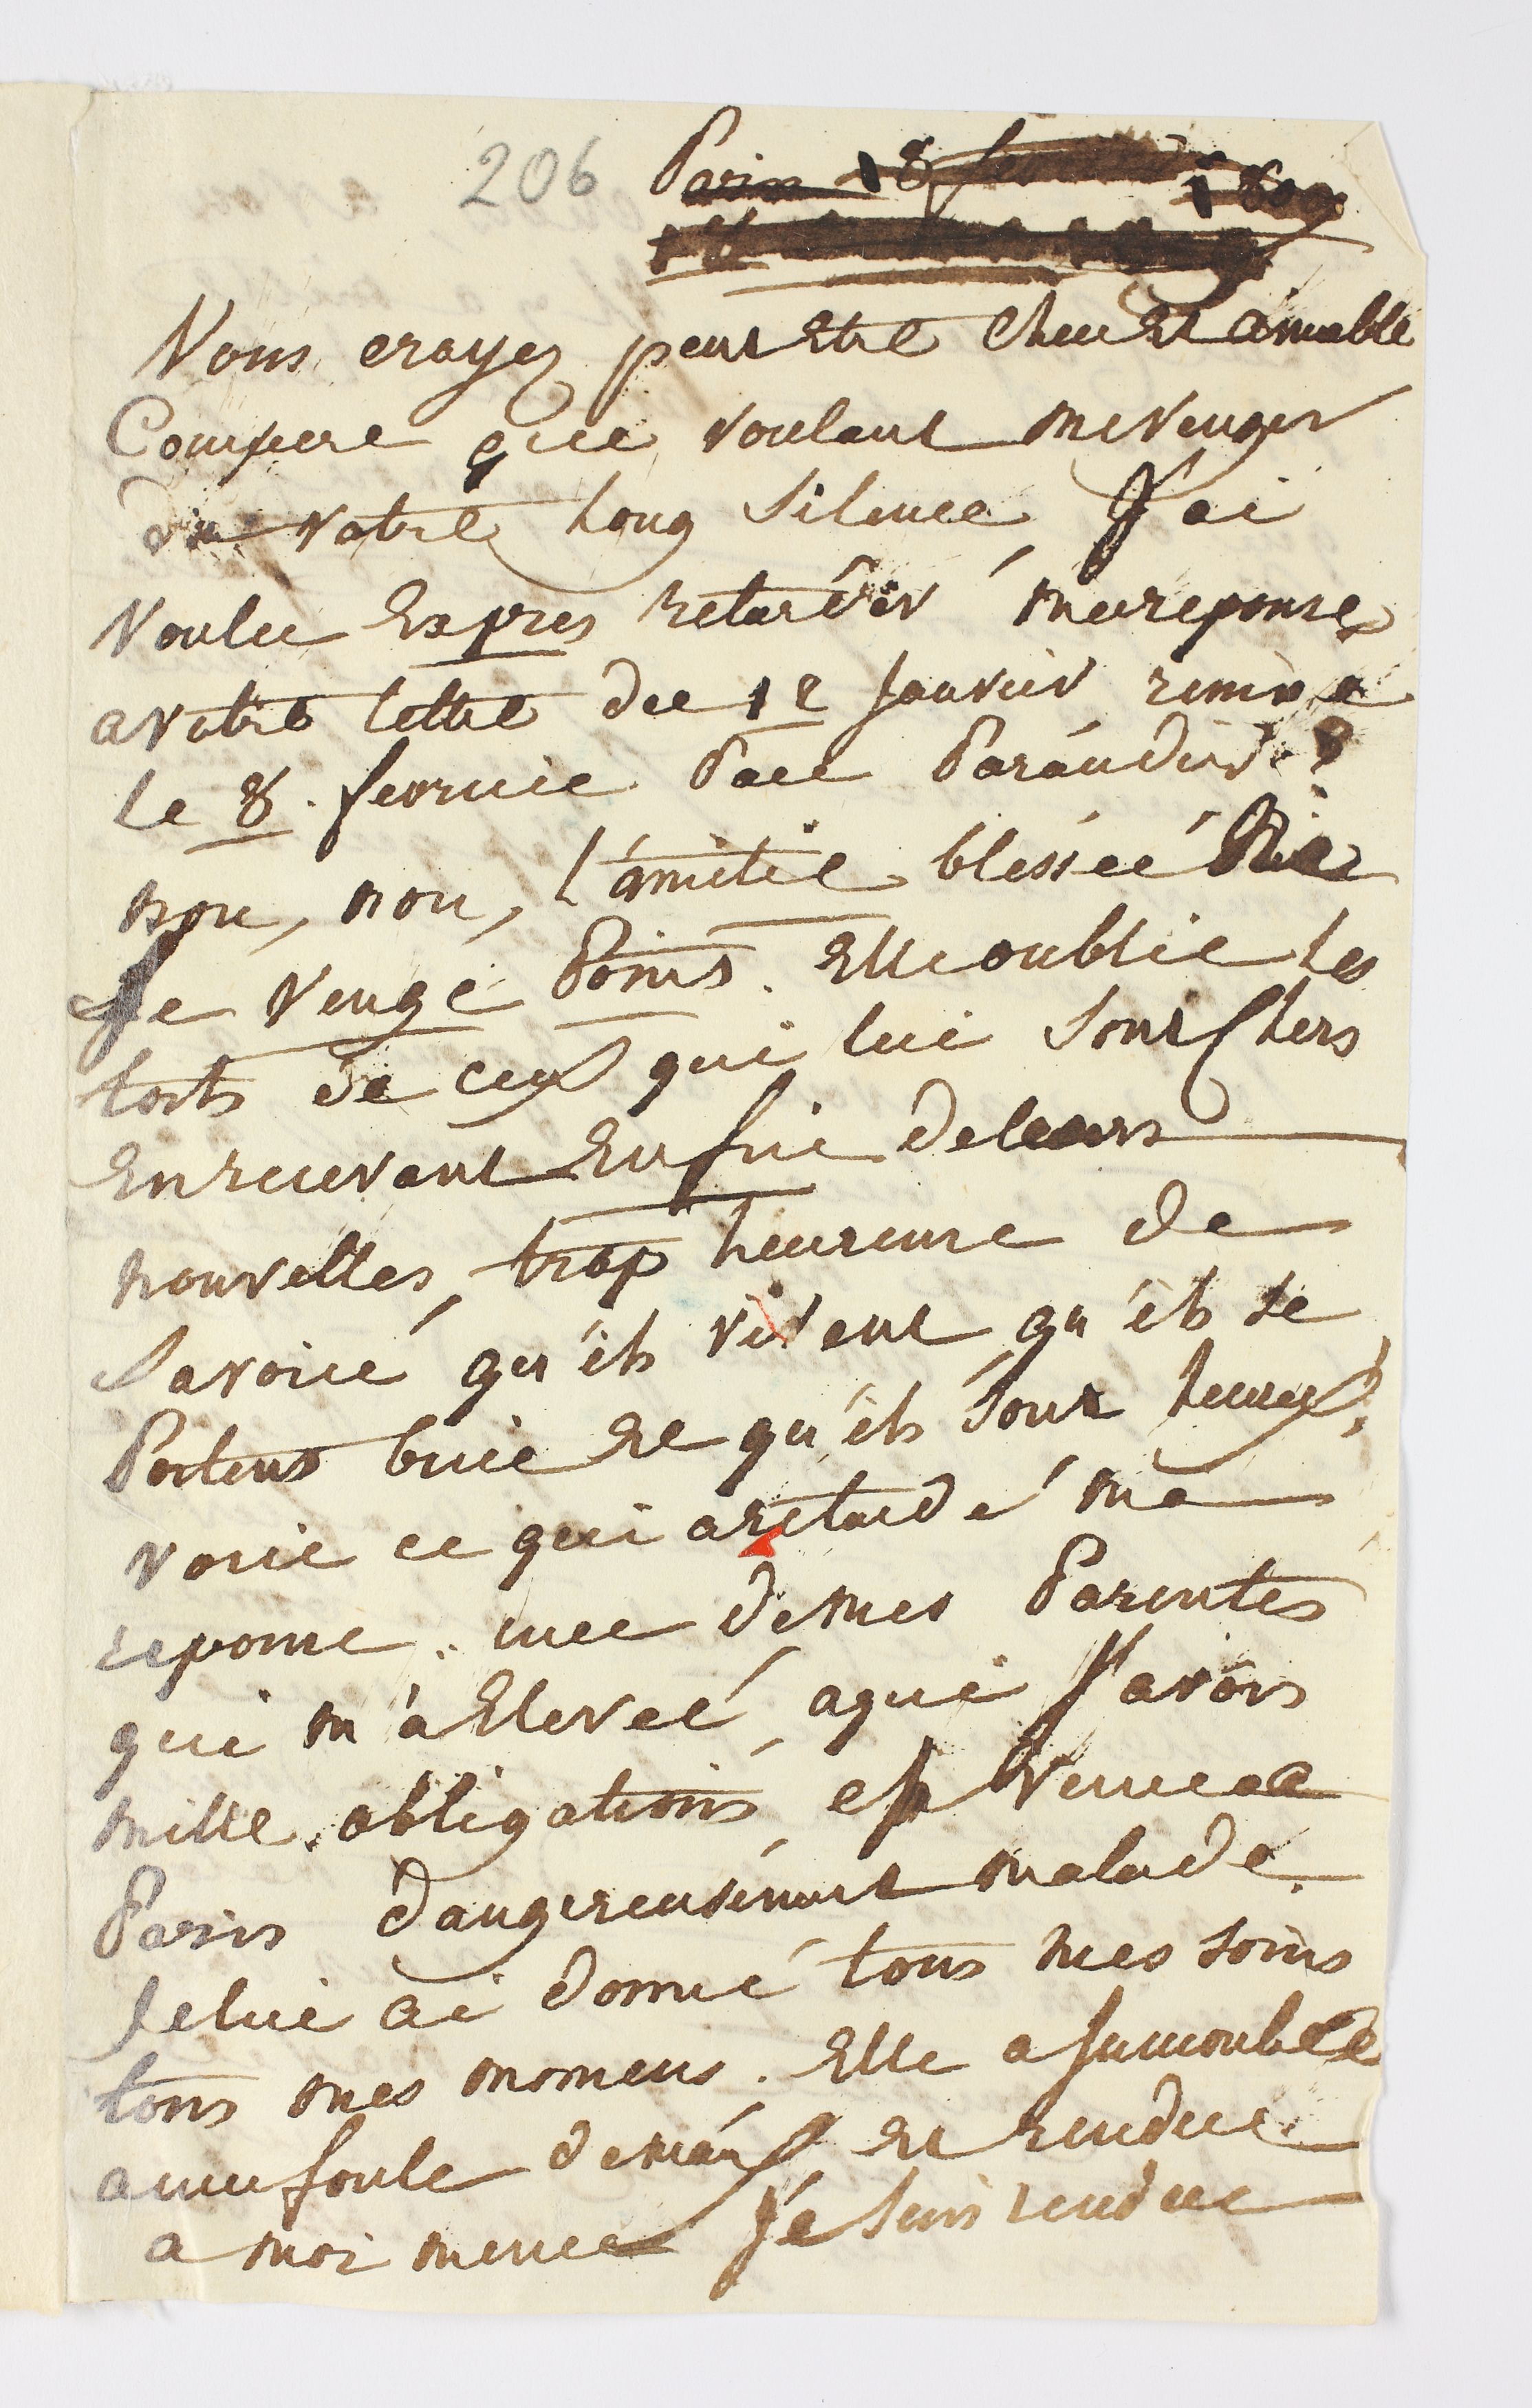 206 Paris 18 fevrier 1809
Vous croyez peut Etre cher Et aimable
Compere que voulant me venger
du votre long silence, J'ai
voulu Expres retarder ma reponse
a votre lettre du 12 janvier remise
le 8. fevrier Par Parandier ?
non, non, l'amitié blesséé Ne
se venge Point. Elle oublie les
torts de ceux qui lui sont Chers
En recevant Enfin de leurs
nouvelles, trop heureuse de
savoir qu'ils vivent, qu'ils se
Portent bien Et qu'ils sont heureux,
voici ce qui a retardé ma
reponse. une de mes Parentes
qui m'a Elevéé, a qui J'avois
mille obligations, est venue a
Paris dangereusement malade.
Je lui ai donné tous mes soins
tous mes momens. Elle a succombéé
a une foule de maux, Et rendue
a moi meme Je suis rendue